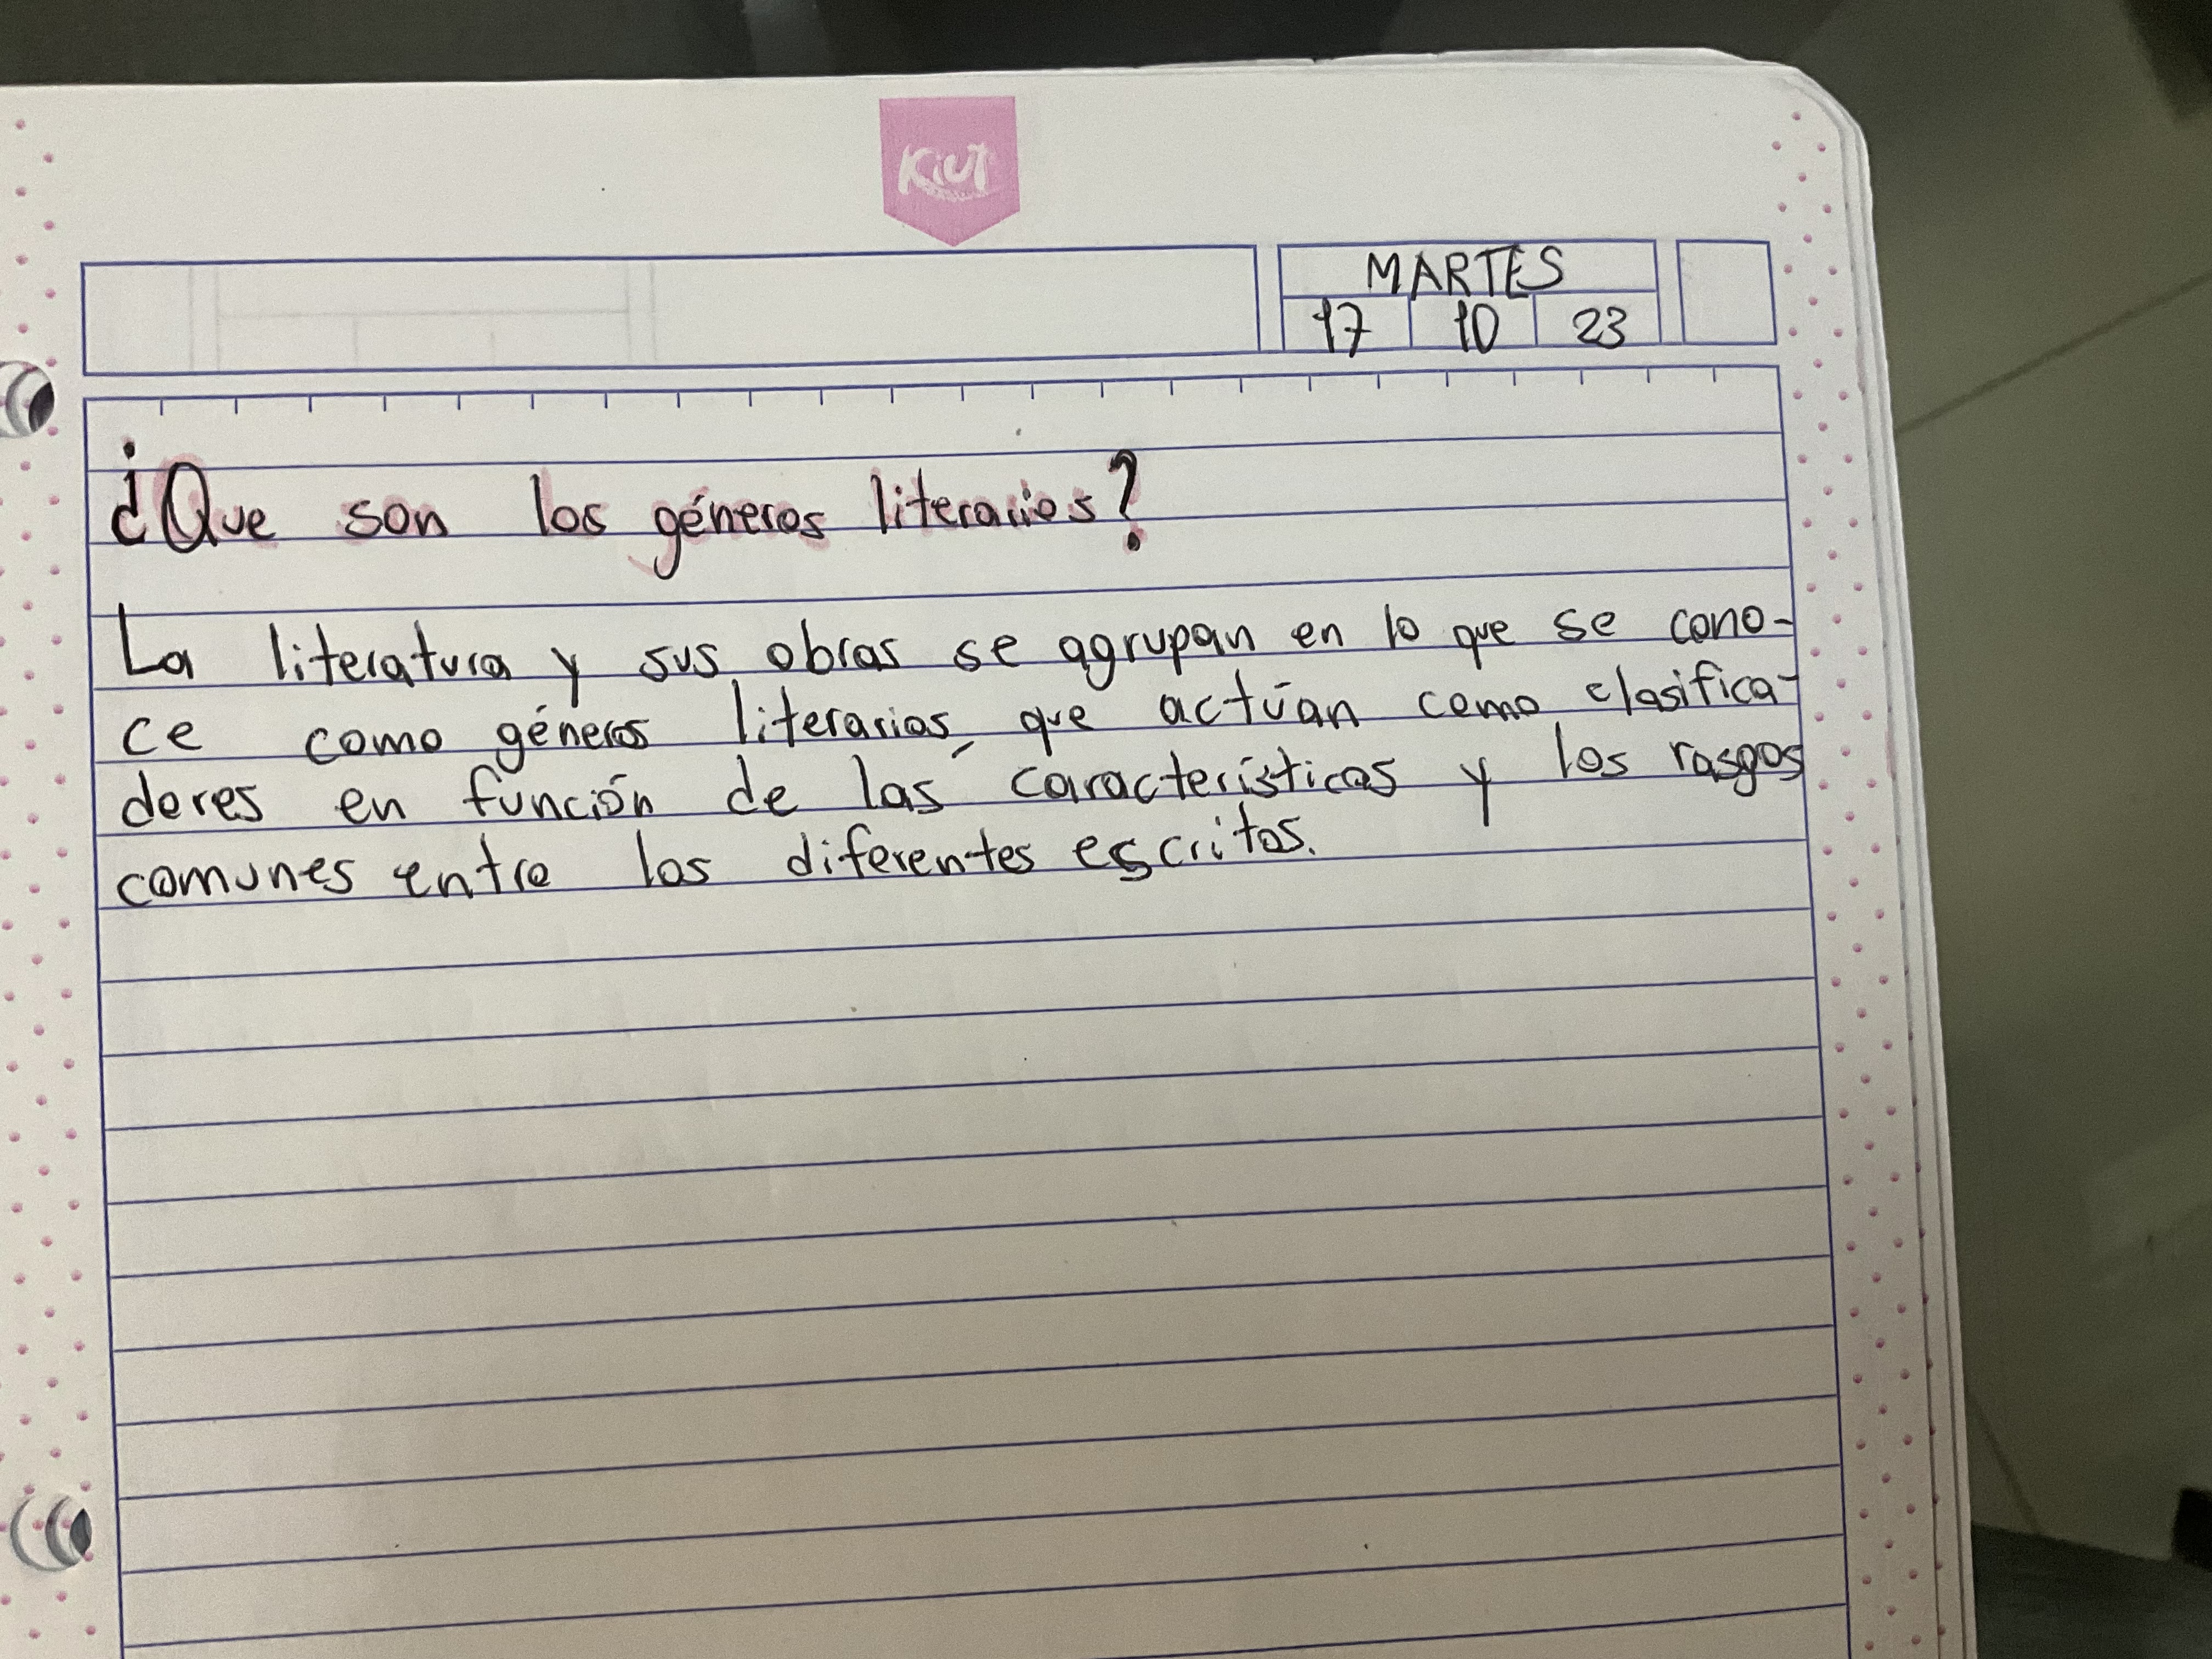 Kiut
MARTES
17 10 23
¿Que son los géneros literarios?
La literatura y sus obras se agrupan en lo que se cono-
ce como géneros literarios, que actúan como clasifica-
dores en función de las características y los rasgos
comunes entre los diferentes escritos.